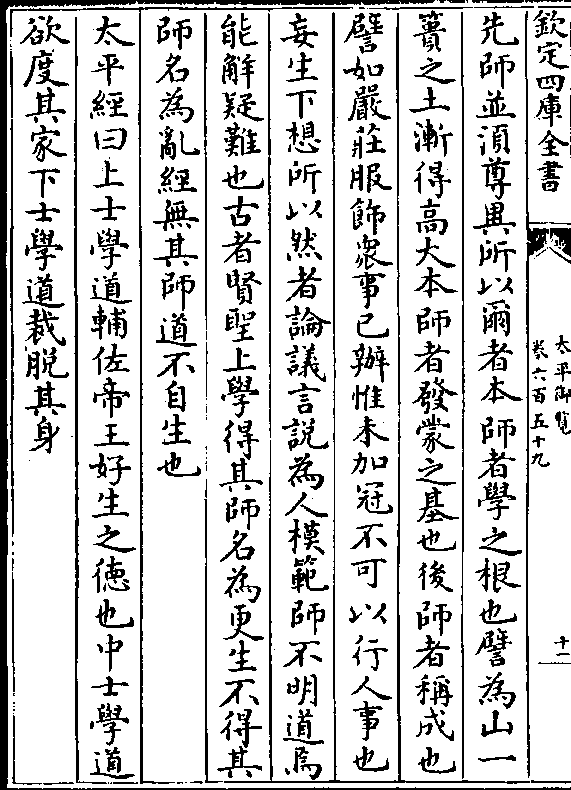 欽定四庫全書
太平御覽
卷六百五十九
十一
先師並須尊異所以爾者本師者學之根也譬為山一
簣之土漸得高大本師者發蒙之基也後師者稱成也
譬如嚴莊服飾衆事已辦惟未加冠不可以行人事也
妄生下想所以然者論議言說為人模範師不明道焉
能解疑難也古者賢聖上學得其師名為更生不得其
師名為亂經無其師道不自生也
太平經曰上士學道輔佐帝王好生之德也中士學道
欲度其家下士學道裁脫其身